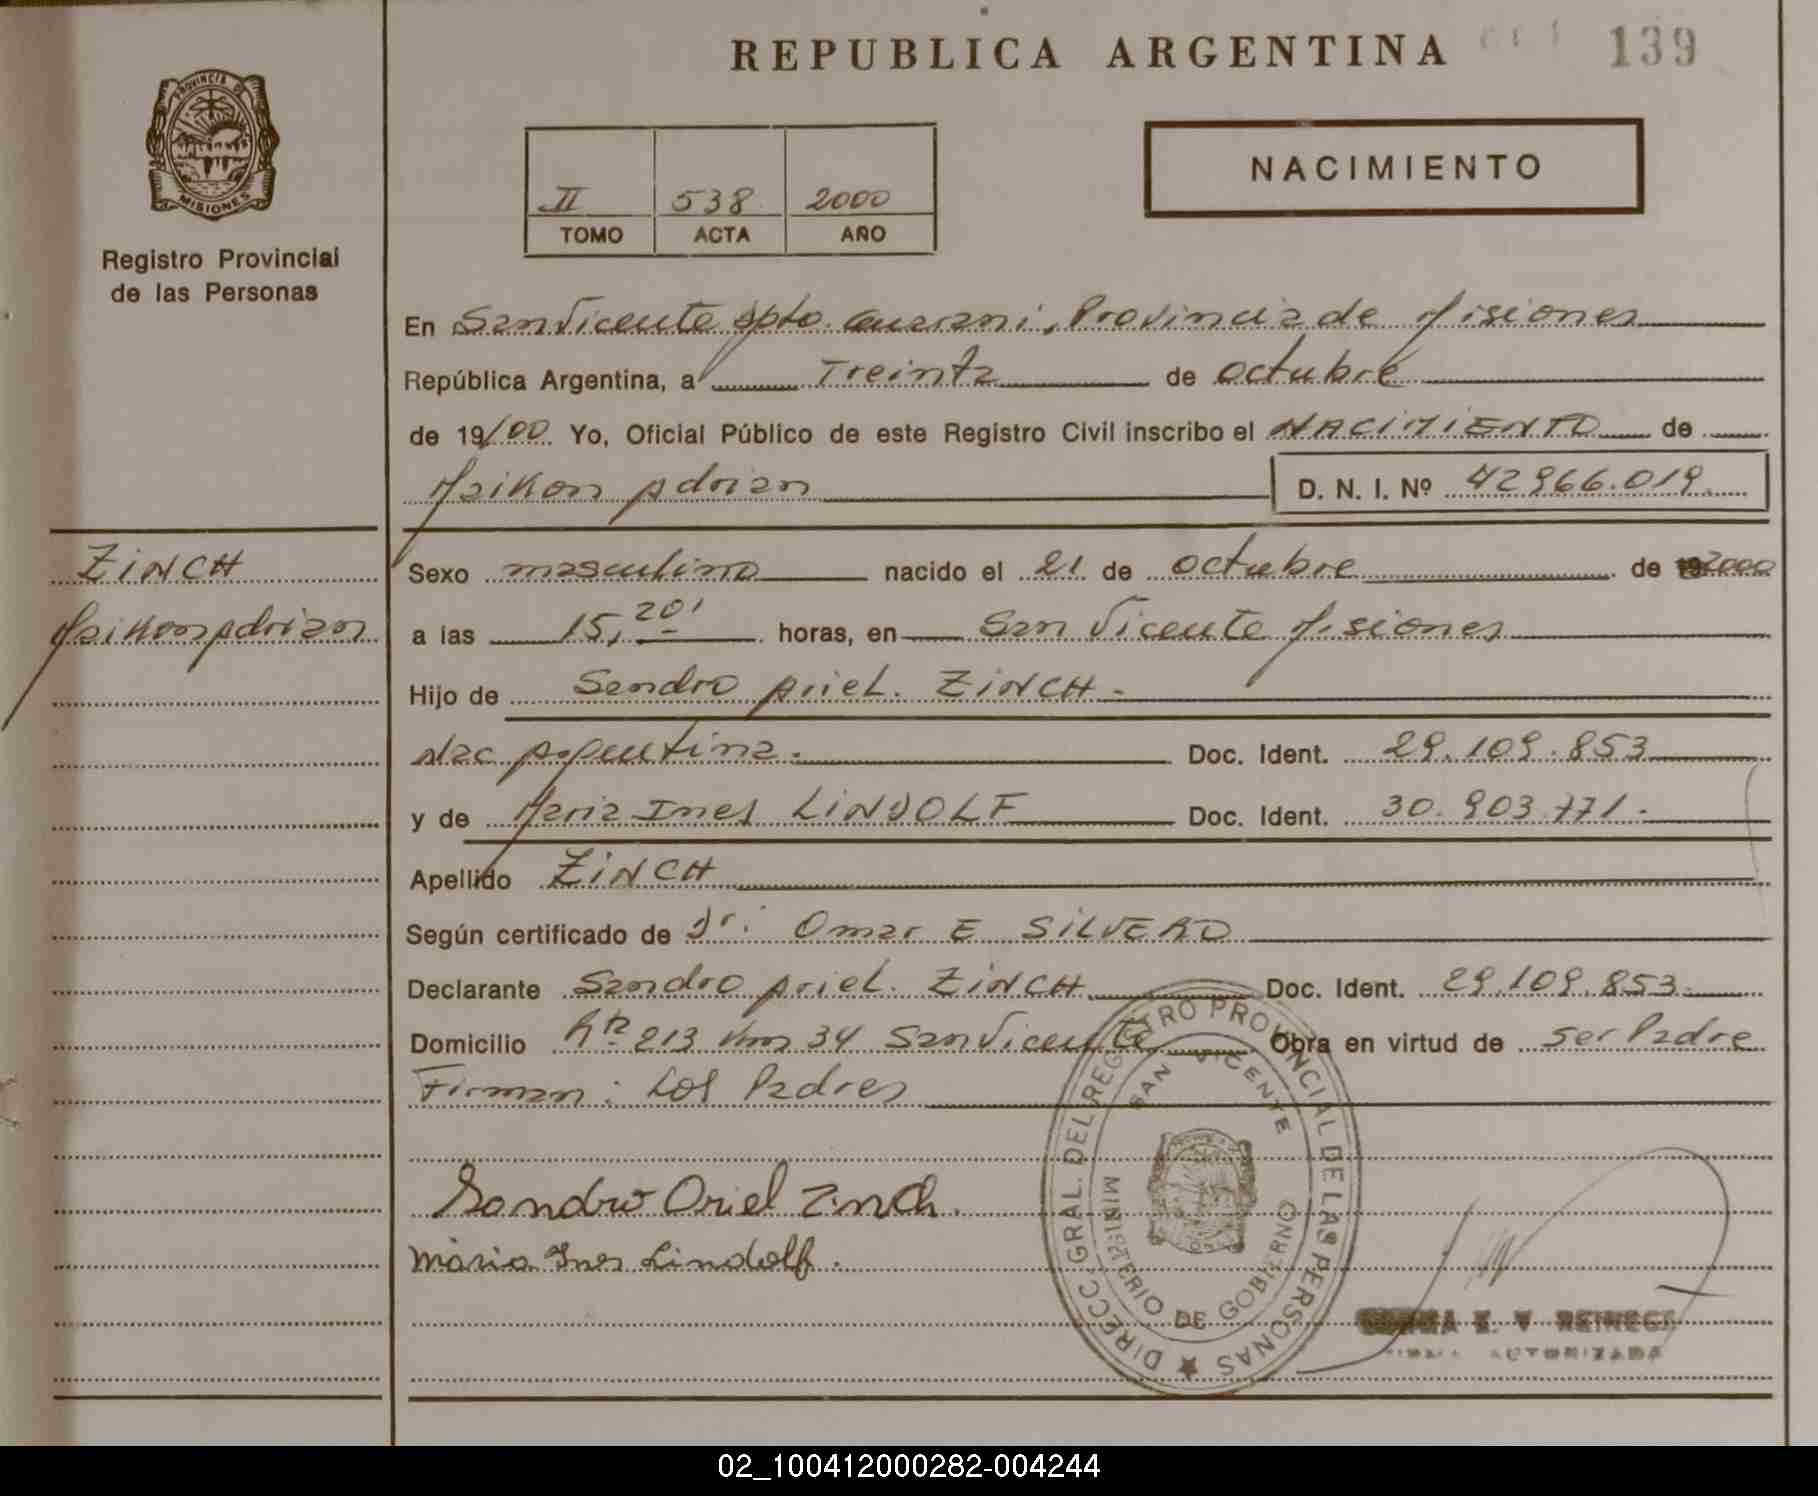 REPUBLICA ARGENTINA
139
PROVINCIA DE
MISIONES
Registro Provincial
de las Personas
II 538 2000
TOMO ACTA AÑO
NACIMIENTO
En San Vicente Dpto. Guarani, Provincia de Misiones
República Argentina, a Treinta de octubre
de 19/00 Yo, Oficial Público de este Registro Civil inscribo el NACIMIENTO de
Maikon Adrian D. N. I. Nº 42966.019
ZINCH
Maikon Adrian
Sexo masculino nacido el 21 de octubre de 2000
a las 15,20' horas, en San Vicente Misiones
Hijo de Sandro Ariel. ZINCH-
Nac Argentina. Doc. Ident. 29.109.853
y de Maria Ines LINDOLF Doc. Ident. 30.903.771.-
Apellido ZINCH
Según certificado de Dr: Omar E SILVERO
Declarante Sandro Ariel. ZINCH Doc. Ident. 29.109.853
Domicilio Rta 213 Km 34 San Vicente Obra en virtud de ser Padre
Firman: Los Padres
Sandro Oriel Zinch.
Maria Ines Lindolf.
DIRECC GRAL. DEL REGISTRO PROVINCIAL DE LAS PERSONAS
SAN VICENTE
MINISTERIO DE GOBIERNO
E. V
AUTORIZADA
02_100412000282-004244